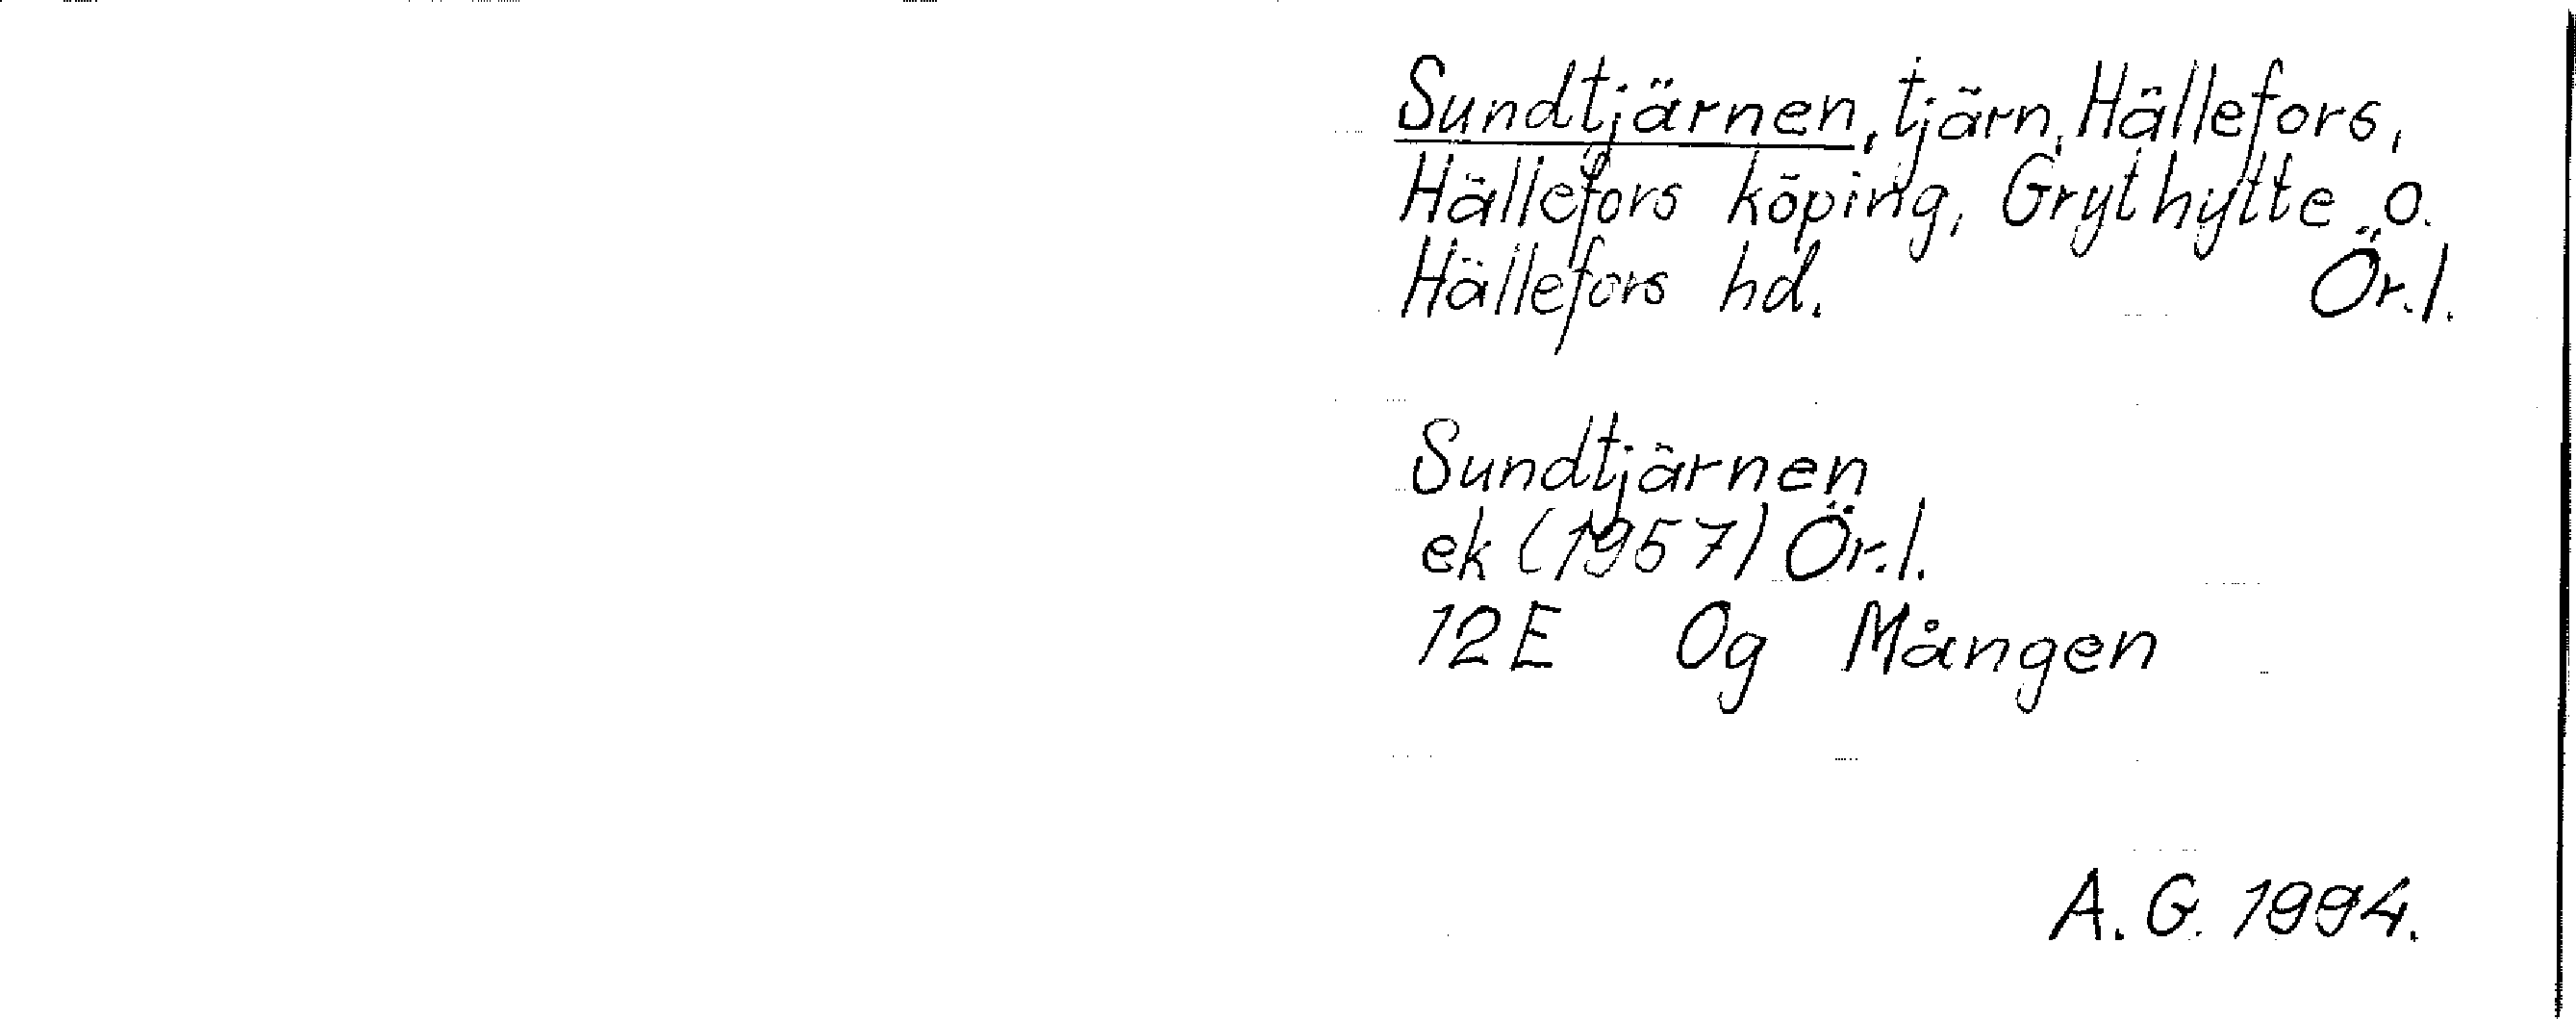 Sundtjärnen, tjärn, Hällefors,
Hällefors köping, Grythytte o.
Hällefors hd. Ör.l.
Sundtjärnen
ek (1957) Ör.l.
12E 0g Mången
A.G. 1994.